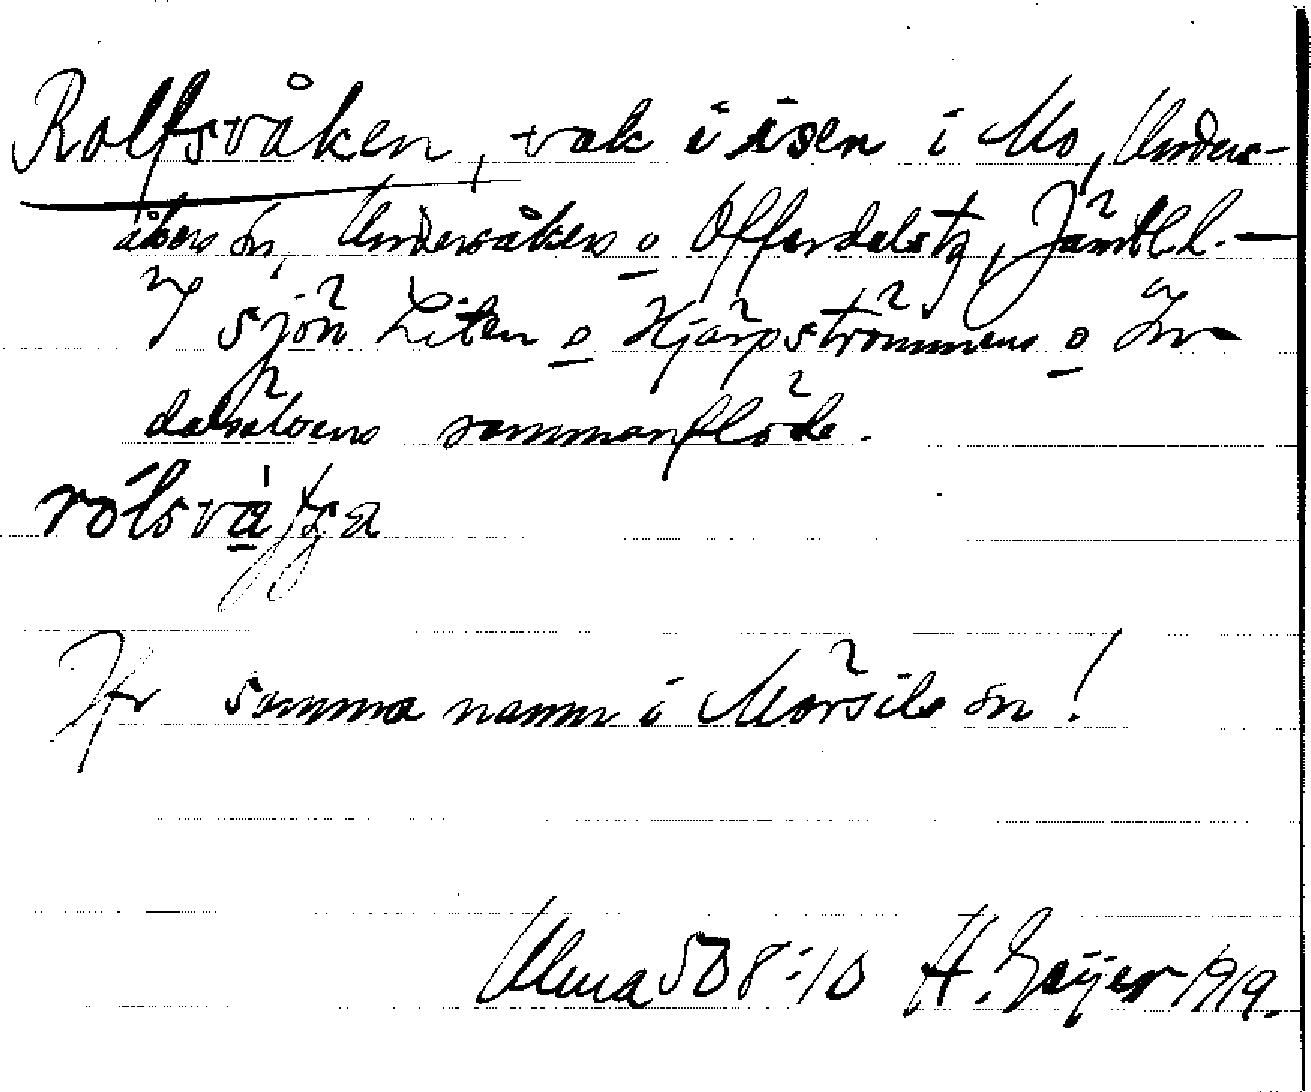 Rolfsvåken, vak i isen i Mo, Unders-
åkers sn, Undersåkers o Offerdals tg, Jämtl. l. —
I sjön Liten o Hjärpströmmens o In-
dalsälvens sammanflöde.
rólsvà
Jfr samma namn i Mörsils sn!
Uma 508:10 H. Geijer 1919.